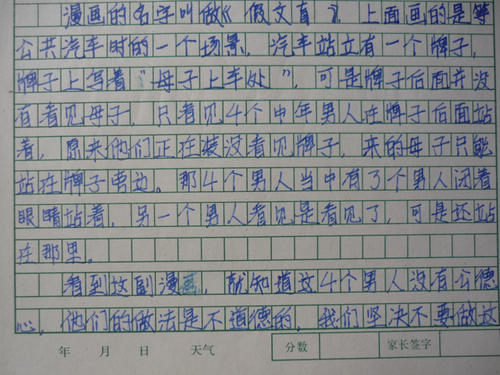 漫画的名字叫做《假文盲》，上面画的是等
公共汽车时的一个场景。汽车站立有一个牌子，
牌子上写着“母子上车处”，可是牌子后面并没
有看见母子，只看见4个中年男人在牌子后面站
着，原来他们正在装没看见牌子，来的母子只能
站在牌子旁边。那4个男人当中有了个男人闭着
眼睛站着，另一个男人看见是看见了，可是还站
在那里。
看到这副漫画，就知道这4个男人没有公德
心，他们的做法是不道德的，我们坚决不要做这
年 月 日 天气 分数 家长签字